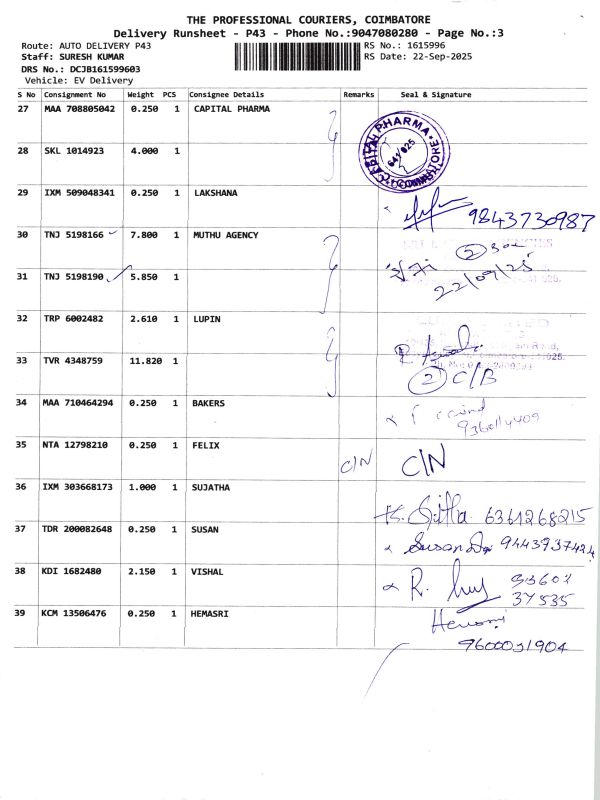 THE PROFESSIONAL COURIERS, COIMBATORE
Delivery Runsheet - P43 - Phone No.:9047080280 - Page No.:3
Route: AUTO DELIVERY P43 RS No.: 1615996
Staff: SURESH KUMAR RS Date: 22-Sep-2025
DRS No.: DCJB161599603
Vehicle: EV Delivery
S No Consignment No Weight PCS Consignee Details Remarks Seal & Signature
27 MAA 708805042 0.250 1 CAPITAL PHARMA
CAPITAL PHARMA
641 025
28 SKL 1014923 4.000 1
29 IXM 509048341 0.250 1 LAKSHANA
9843730987
30 TNJ 5198166 7.800 1 MUTHU AGENCY
2
31 TNJ 5198190 5.850 1
22/09/25
32 TRP 6002482 2.610 1 LUPIN
33 TVR 4348759 11.820 1
2 C/B
34 MAA 710464294 0.250 1 BAKERS
35 NTA 12798210 0.250 1 FELIX
C/N C/N
36 IXM 303668173 1.000 1 SUJATHA
6361268215
37 TDR 200082648 0.250 1 SUSAN
Susan 9443937424
38 KDI 1682480 2.150 1 VISHAL
R.
37535
39 KCM 13506476 0.250 1 HEMASRI
9600031904